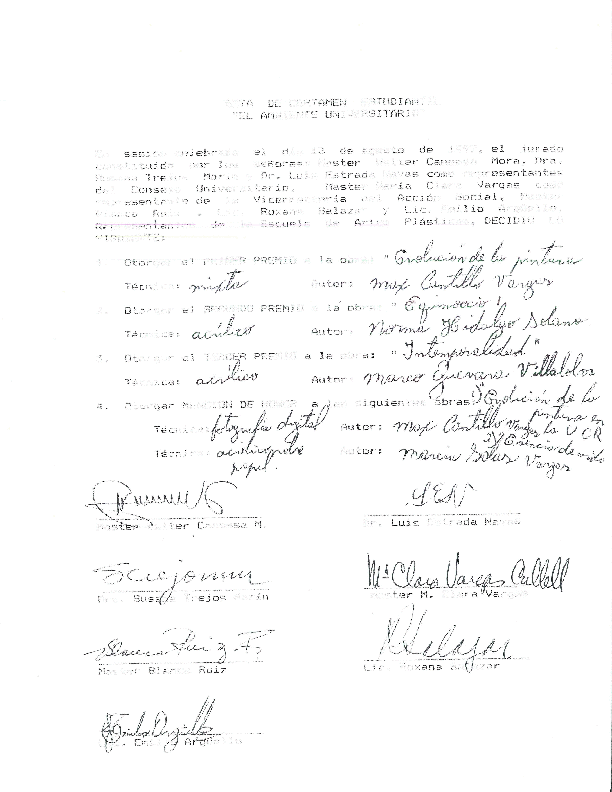 ACTA DE CERTAMEN ESTUDIANTIL
DEL AMBIENTE UNIVERSITARIO
En sesión celebrada el día de agosto de el jurado
constituido por los señores Master Walter Canessa Mora, Dra.
Susana Trejos Marín Dr. Luis Estrada Navas como representantes
del Consejo Universitario, Master María Clara Vargas como
representante de la Vicerrectoría de Acción Social, Master
Blanca Ruiz Roxana Salazar y Lic. Emilio
representantes de la Escuela de Artes Plásticas, DECIDIO lo
siguiente:
1. Otorgar el PRIMER PREMIO a la obra: "Evolución de la pintura
Técnica: mixta Autor: Max Cantillo Vargas
2. Otorgar el SEGUNDO PREMIO a la obra: " Equinoccio "
Técnica: acrílico Autor: Norma Hidalgo Solano
3. Otorgar el TERCER PREMIO a la obra: "Intemporalidad"
Técnica: acrílico Autor: Marco Guevara Villalobos
4. Otorgar MENCION DE HONOR a las siguientes obras: 1) Evolución de la
pintura en la UCR
Técnica: fotografía digital Autor: Max Cantillo Vargas
2) Esencia de vida
Técnica: acrílico sobre papel. Autor: Marcia Salas Vargas
Master Walter Canessa M. Dr. Luis Estrada Navas
Mª Clara Vargas Cullell
Dra. Susana Trejos Marín Master M. Clara Vargas
Master Blanca Ruiz Lic. Roxana Salazar
Lic. Emilio Argüello